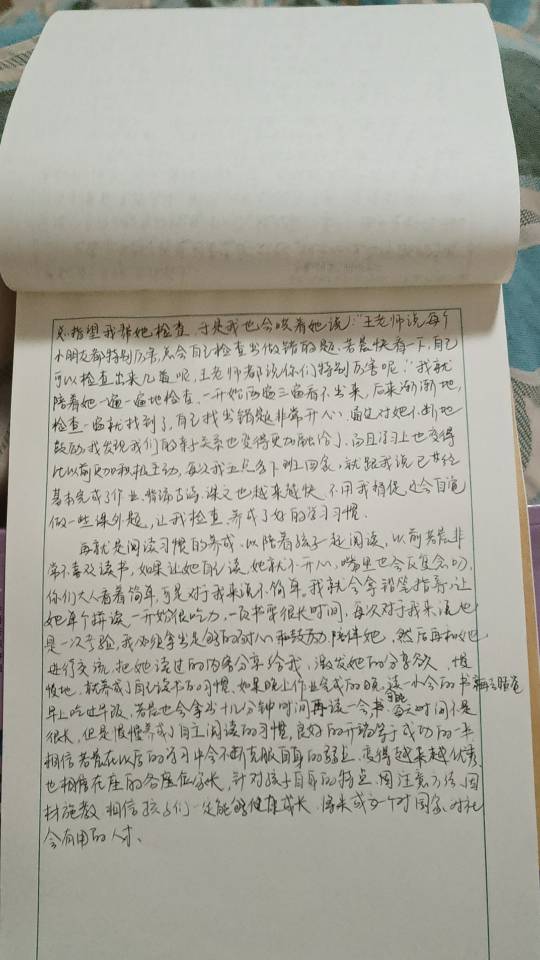 总指望我帮她检查，于是我也会哄着她说："王老师说每个
小朋友都特别厉害，总会自己检查出做错的题，若芸快看一下，自己
可以检查出来几道呢，王老师都说你们特别厉害呢。"我就
陪着她一遍一遍地检查，一开始两遍三遍看不出来，后来渐渐地，
检查一遍就找到了，自己找出错题非常开心，通过对她不断地
鼓励，我发现我们的亲子关系也变得更加融洽了，而且学习上也变得
比以前更加积极主动，每次我五点多下班回家，就跟我说已经
基本完成了作业，背诵古诗、课文也越来越快，不用我督促，还会自觉
做一些课外题，让我检查，养成了好的学习习惯。
再就是阅读习惯的养成，以陪着孩子一起阅读，以前若芸非
常不喜欢读书，如果让她自己读，她就不开心，嘴里也会反复念叨，
你们大人看着简单，可是对于我来说不简单。我就会拿铅笔指导，让
她单个拼读，一开始很吃力，一页书要很长时间，每次对于我来说也
是一次考验，我必须拿出足够的耐心和鼓励，陪伴她，然后再和她
进行交流，把她读过的内容分享给我，激发她的分享欲，慢
慢地，就养成了自己读书的习惯，如果晚上作业完成的晚，读一小会的书再去睡觉
早上吃过早饭，若芸也会拿出十几分钟时间再读一会书，每天时间不是
很长，但是慢慢养成了自主阅读的习惯，良好的开端等于成功的一半，
相信若芸在以后的学习中会不断克服自身的弱点，变得越来越优秀，
也相信在座的各位家长，针对孩子自身的特点，因注意方法，因
材施教，相信孩子们一定能够健康成长，将来成为一个对国家、对社
会有用的人才。